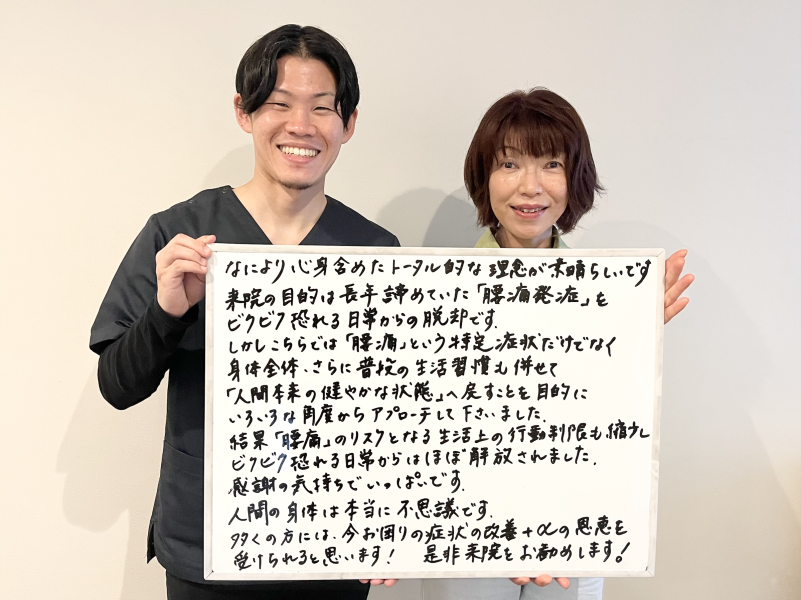 なにより心身含めたトータル的な理念が素晴らしいです
来院の目的は長年諦めていた「腰痛発症」を
ビクビク恐れる日常からの脱却です.
しかしこちらでは「腰痛」という特定症状だけでなく
身体全体、さらに普段の生活習慣も併せて
「人間本来の健やかな状態」へ戻すことを目的に
いろいろな角度からアプローチして下さいました.
結果「腰痛」のリスクとなる生活上の行動制限も縮少し
ビクビク恐れる日常からはほぼ解放されました.
感謝の気持ちでいっぱいです.
人間の身体は本当に不思議です.
多くの方には、今お困りの症状の改善+αの恩恵を
受けられると思います! 是非来院をお勧めします!